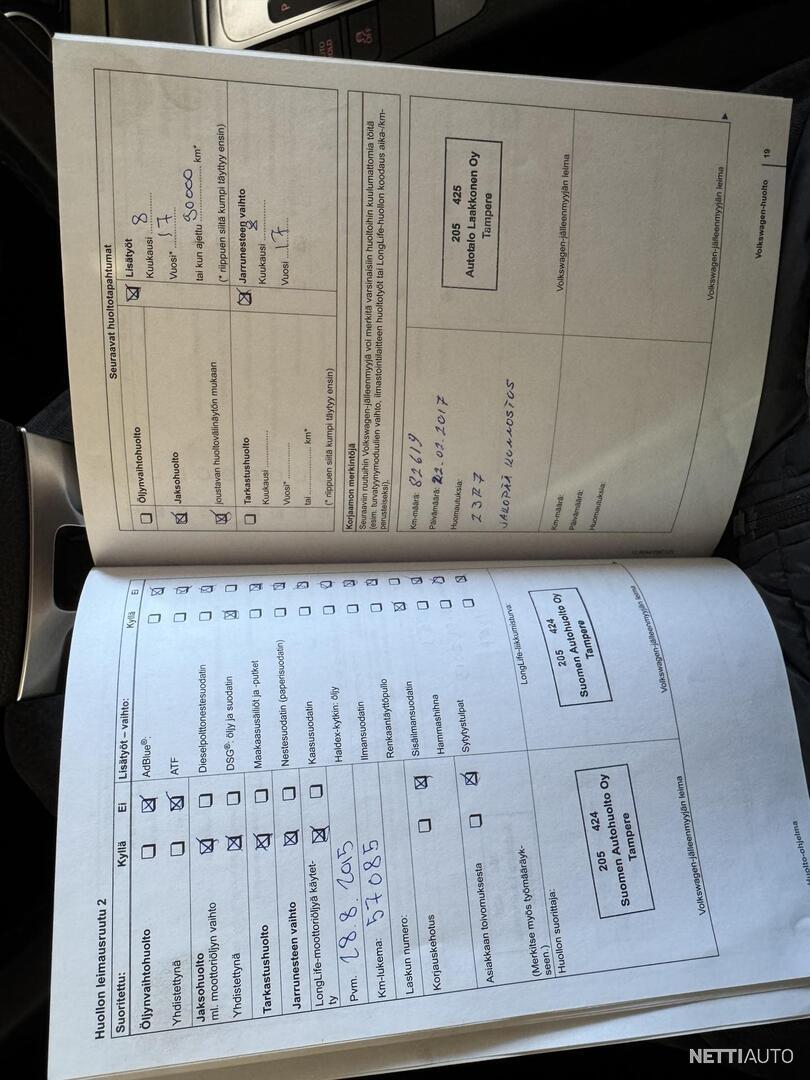 Huollon leimausruutu 2
Suoritettu:
Kyllä
Ei
Öljynvaihtohuolto
Yhdistettynä
Jaksohuolto
ml. moottoriöljyn vaihto
Yhdistettynä
Tarkastushuolto
Jarrunesteen vaihto
LongLife-moottoriöljyä käytet-
ty
Pvm. 28.8.2015
Km-lukema: 57085
Laskun numero:
Korjauskehotus
Asiakkaan toivomuksesta
(Merkitse myös työmääräyk-
seen.)
Huollon suorittaja:
205 424
Suomen Autohuolto Oy
Tampere
Volkswagen-jälleenmyyjän leima
Lisätyöt – vaihto:
Kyllä
Ei
AdBlue®:
ATF
Dieselpolttonestesuodatin
DSG®: öljy ja suodatin
Maakaasusäiliöt ja -putket
Nestesuodatin (paperisuodatin)
Kaasusuodatin
Haldex-kytkin: öljy
Ilmansuodatin
Renkaantäyttöpullo
Sisäilmansuodatin
Hammashihna
Sytytystulpat
LongLife-liikkumisturva:
205 424
Suomen Autohuolto Oy
Tampere
Volkswagen-jälleenmyyjän leima
Seuraavat huoltotapahtumat
Öljynvaihtohuolto
Jaksohuolto
joustavan huoltovälinäytön mukaan
Tarkastushuolto
Kuukausi
Vuosi*
tai km*
(* riippuen siitä kumpi täytyy ensin)
Lisätyöt
Kuukausi 8
Vuosi* 17
tai kun ajettu 90000 km*
(* riippuen siitä kumpi täyttyy ensin)
Jarrunesteen vaihto
Kuukausi 8
Vuosi 17
Korjaamon merkintöjä
Seuraaviin ruutuihin Volkswagen-jälleenmyyjä voi merkitä varsinaisiin huoltoihin kuulumattomia töitä
(esim. turvatyynymoduulien vaihto, ilmastointilaitteen huoltotyöt tai LongLife-huollon koodaus aika-/km-
perusteiseksi).
Km-määrä: 82619
Päivämäärä: 22.02.2017
Huomautuksia:
23R7
JAKOPÄÄ KUNNOSTUS
205 425
Autotalo Laakkonen Oy
Tampere
Volkswagen-jälleenmyyjän leima
Km-määrä:
Päivämäärä:
Huomautuksia:
Volkswagen-jälleenmyyjän leima
Volkswagen-huolto
19
P
OFF
NETTIAUTO